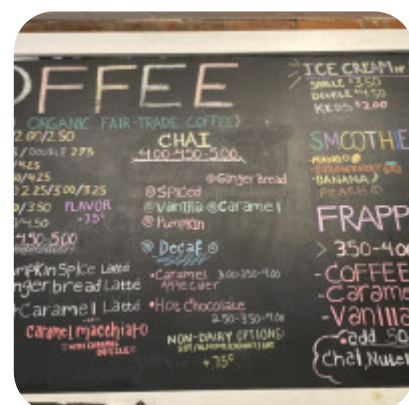 OFFEE
ORGANIC FAIR-TRADE COFFEE)
2.00/2.50
DOUBLE 2.75
2.25/3.00/3.25
FLAVOR
+.75¢
4.50-5.00
Pumpkin Spice Latte
ngerbread Latté
Caramel Latté
Caramel macchiato
CHAI
4.00-4.50-5.00
Ginger Bread
Spiced
Vanilla Caramel
Pumpkin
Decaf
Caramel 3.00-3.50-4.00
Apple Cider
Hot Chocolate
2.50-3.50-4.00
NON-DAIRY OPTIONS:
+.75¢
ICE CREAM
SINGLE $3.50
DOUBLE $4.50
KIDS $2.00
SMOOTHIE
MANGO
STRAWBERRY
BANANA
PEACH
FRAPP
> 3.50-4.00
-COFFEE
-Carame
-Vanilla
add .50
Chai, Nutel